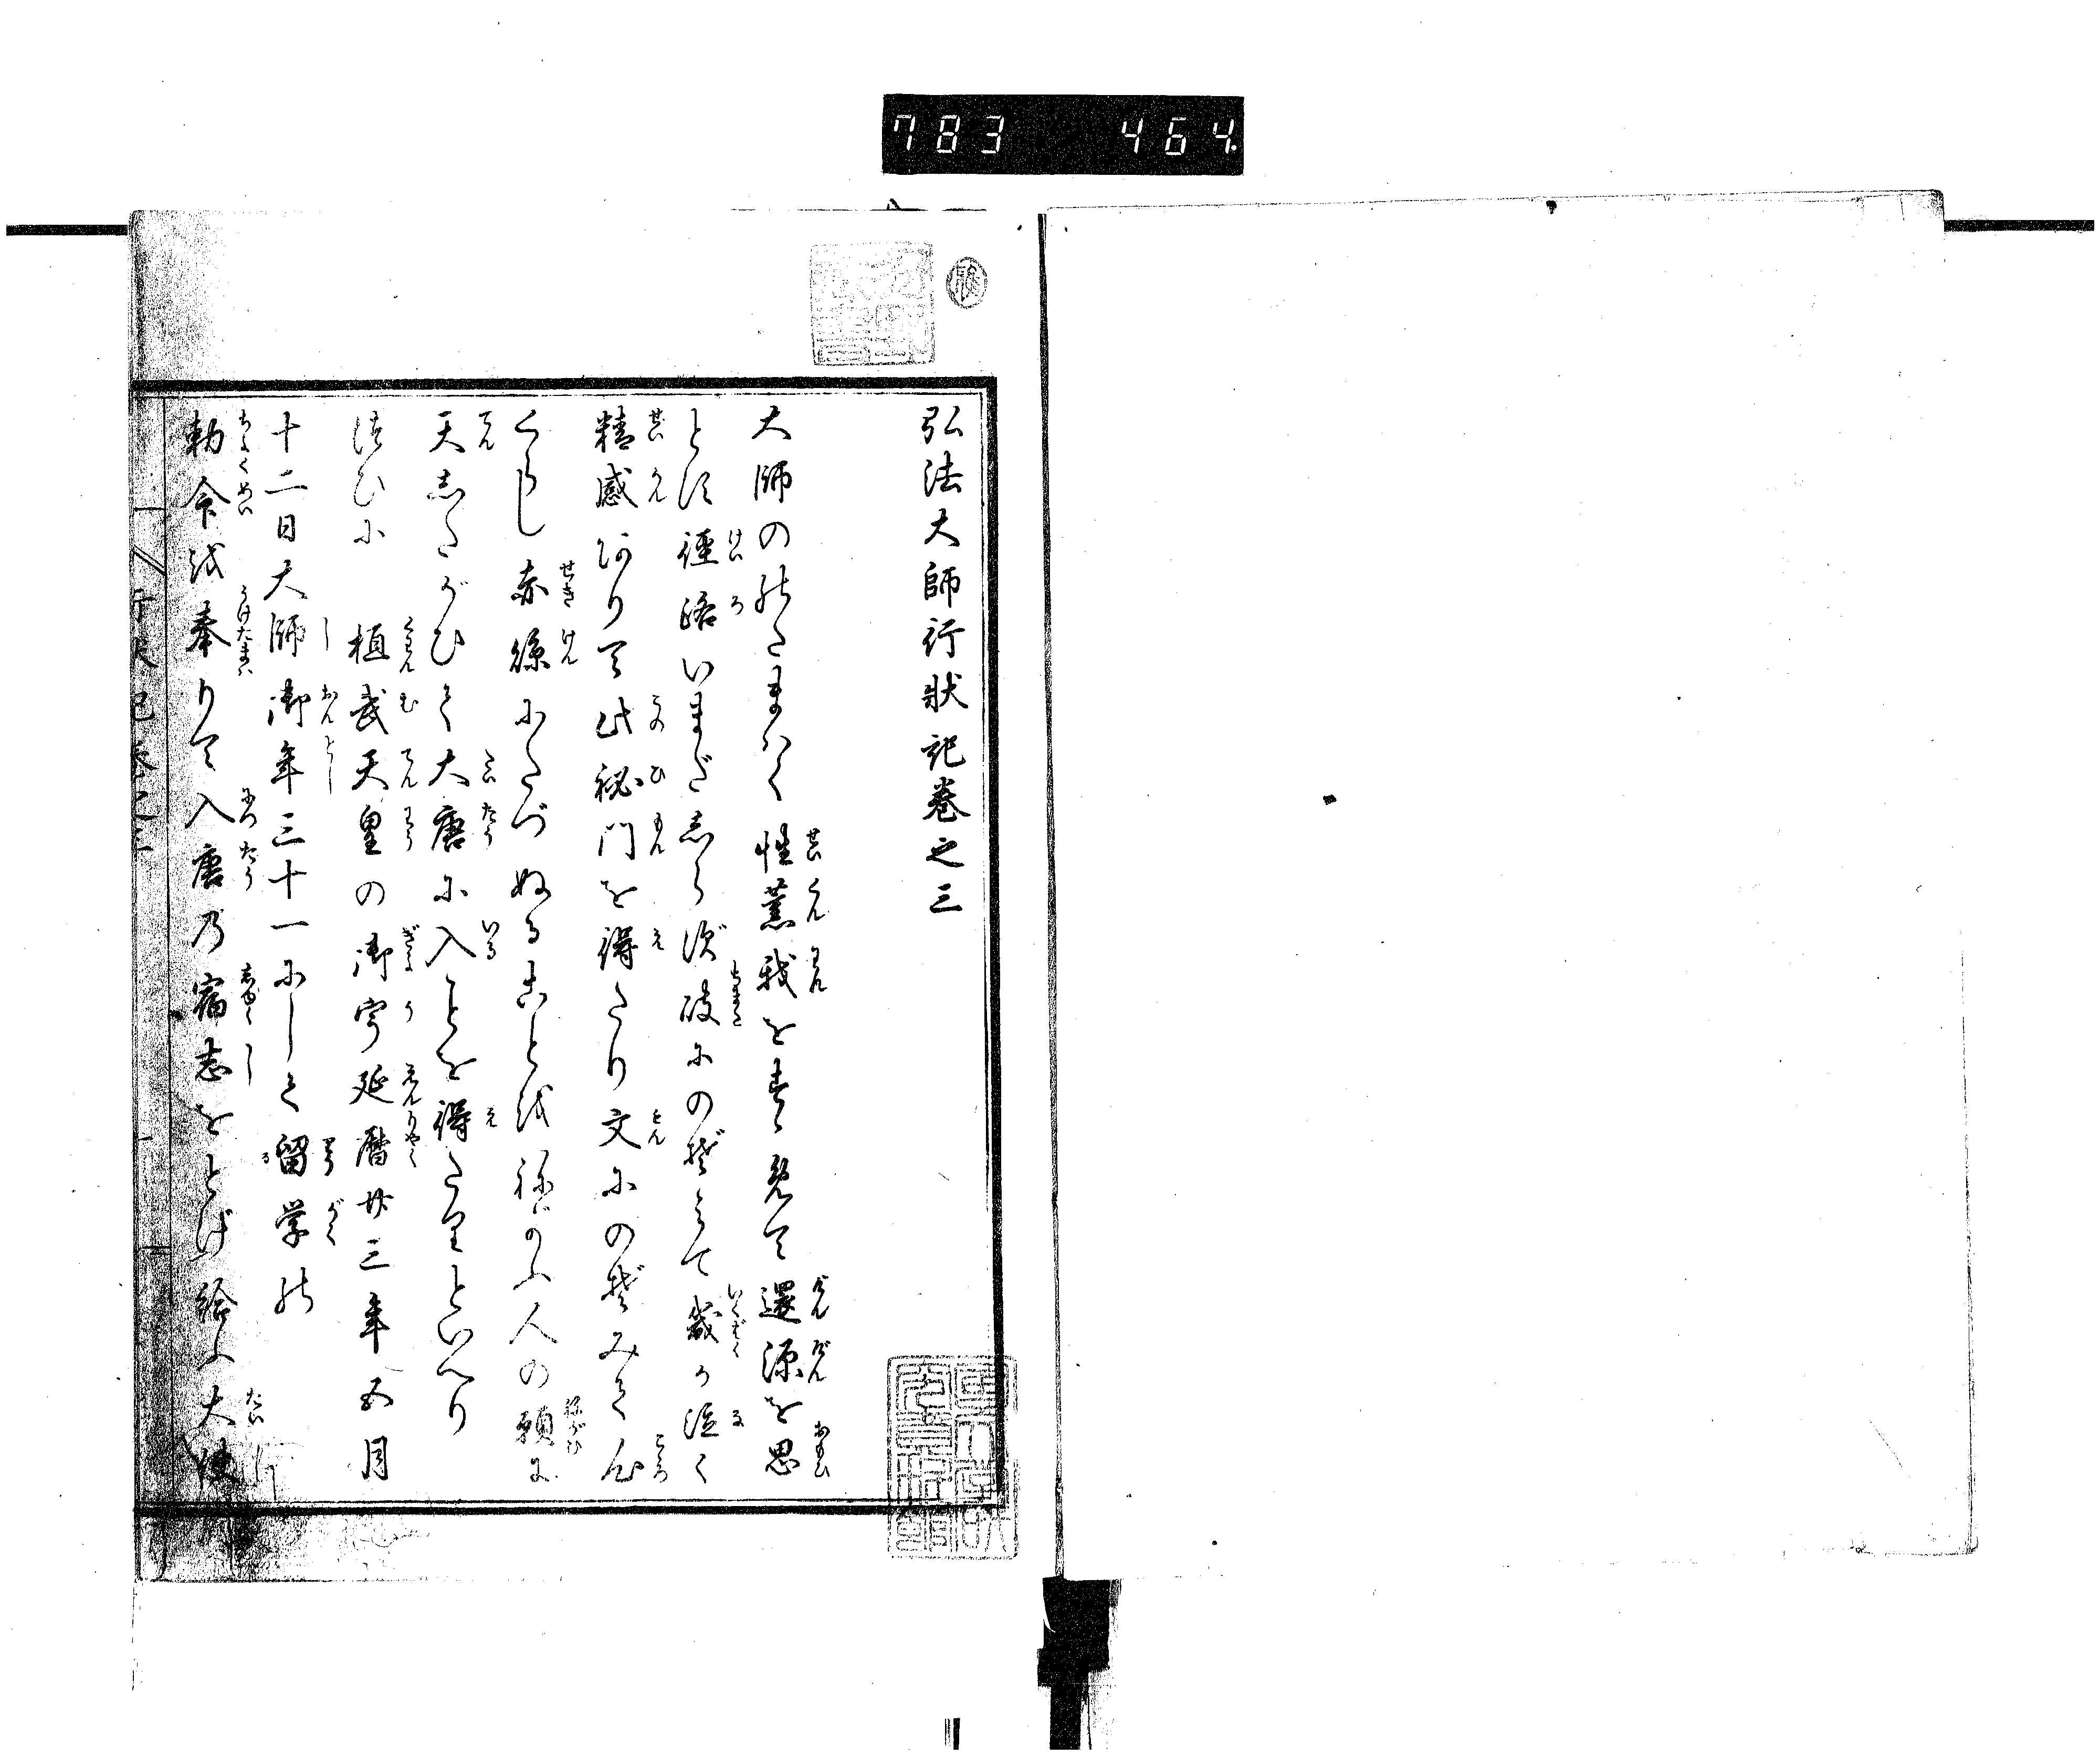 783 464
弘法大師行状記巻之三
大師ののたまはく性薫我をすゝめて還源を思
とす径路いまだしらず岐にのぞみて幾か泣く
精感ありて此秘門を得たり文にのぞみて心
くらし赤縣にたづぬることをねがふ人の願に
天したがひて大唐に入ことを得たりといへり
つひに桓武天皇の御宇延暦廿三年五月
十二日大師御年三十一にして留学の
勅命を奉りて入唐の宿志をとげ給ふ大使